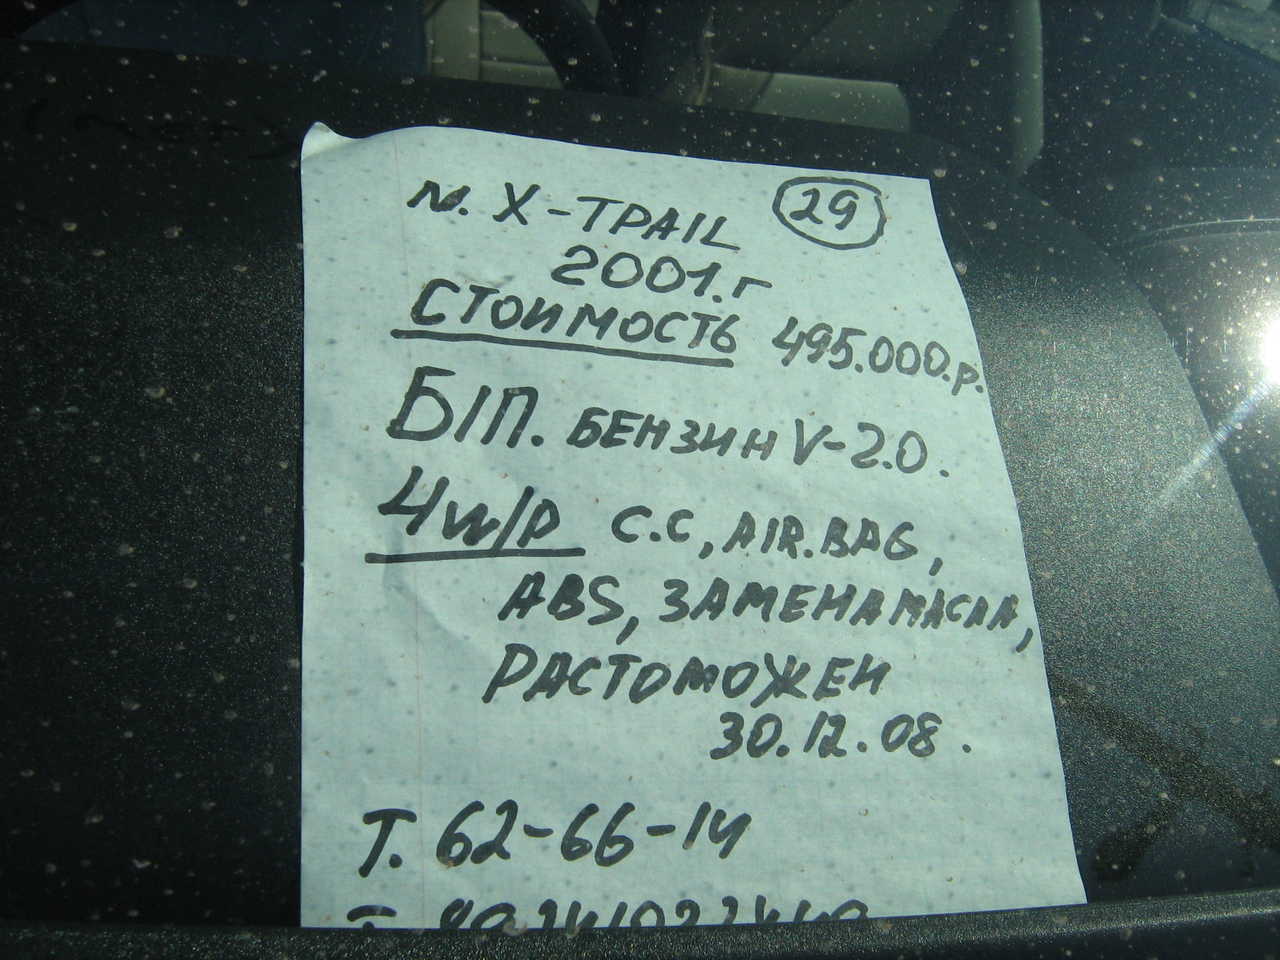 N. X-TRAIL 29
2001.г
СТОИМОСТЬ 495.000.р.
Б/П. БЕНЗИН V-2.0.
4w/D С.С, AIR.BAG,
ABS, ЗАМЕНА МАСЛА,
РАСТОМОЖЕН
30.12.08.
Т. 62-66-14